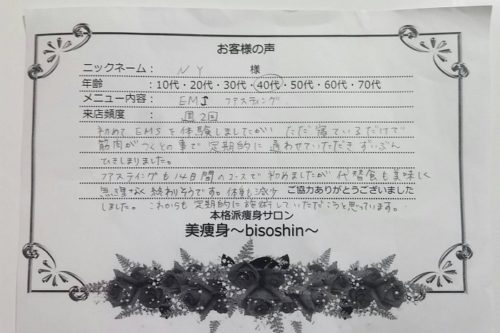 お客様の声
ニックネーム： NY 様
年齢 ：10代・20代・30代・40代・50代・60代・70代
メニュー内容： EMS ファスティング
来店頻度 ： 週2回
初めてEMSを体験しましたが ただ寝ているだけで
筋肉がつくとの事で定期的に通わせていただき ずいぶん
ひきしまりました。
ファスティングも14日間のコースで初めましたが 代替食も美味しく
無理なく終わりそうです。体重も減少 ご協力ありがとうございました
しました。 これからも定期的に施術していただこうと思っています。
本格派痩身サロン
美痩身～bisoshin～